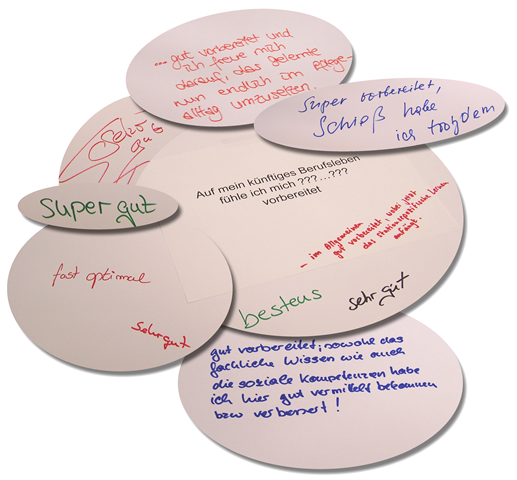 ... gut vorbereitet und
ich freue mich
darauf, das gelernte
nun endlich im Pflege-
alltag umzusetzen.
Super vorbereitet,
Schieß habe
ich trotzdem
Auf mein künftiges Berufsleben
fühle ich mich ???...???
vorbereitet
Super gut
- im Allgemeinen
gut vorbereitet, wobei jetzt
das stationsspezifische Lernen
anfängt.
fast optimal
bestens
sehr gut
sehr gut
gut vorbereitet; sowohl das
fachliche Wissen wie auch
die soziale Kompetenzen habe
ich hier gut vermittelt bekommen
bzw verbessert!